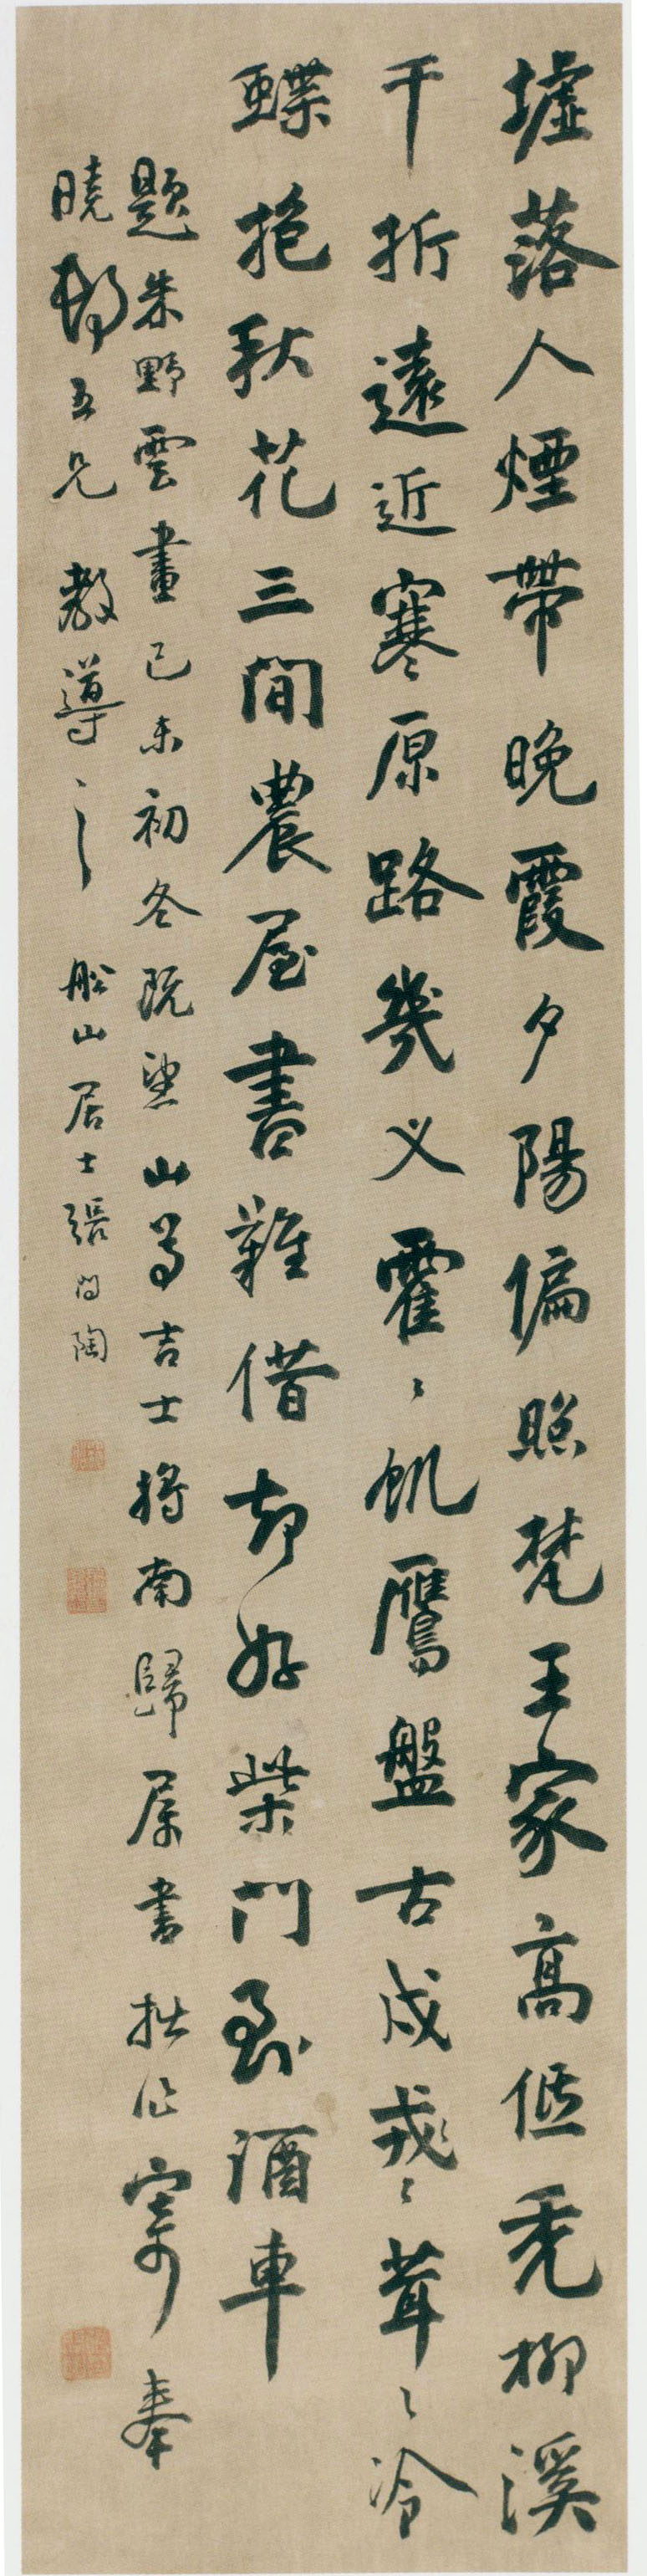 墟落人煙帶晚霞夕陽偏照梵王家高低禿柳溪
千折遠近寒原路幾叉霍〻飢鷹盤古戍戎〻茸〻冷
蝶抱秋花三間農屋書難借却好柴門到酒車
題朱野雲畫己未初冬既望山尊吉士將南歸屬書拙作寄奉
曉五兄教導之船山居士張問陶